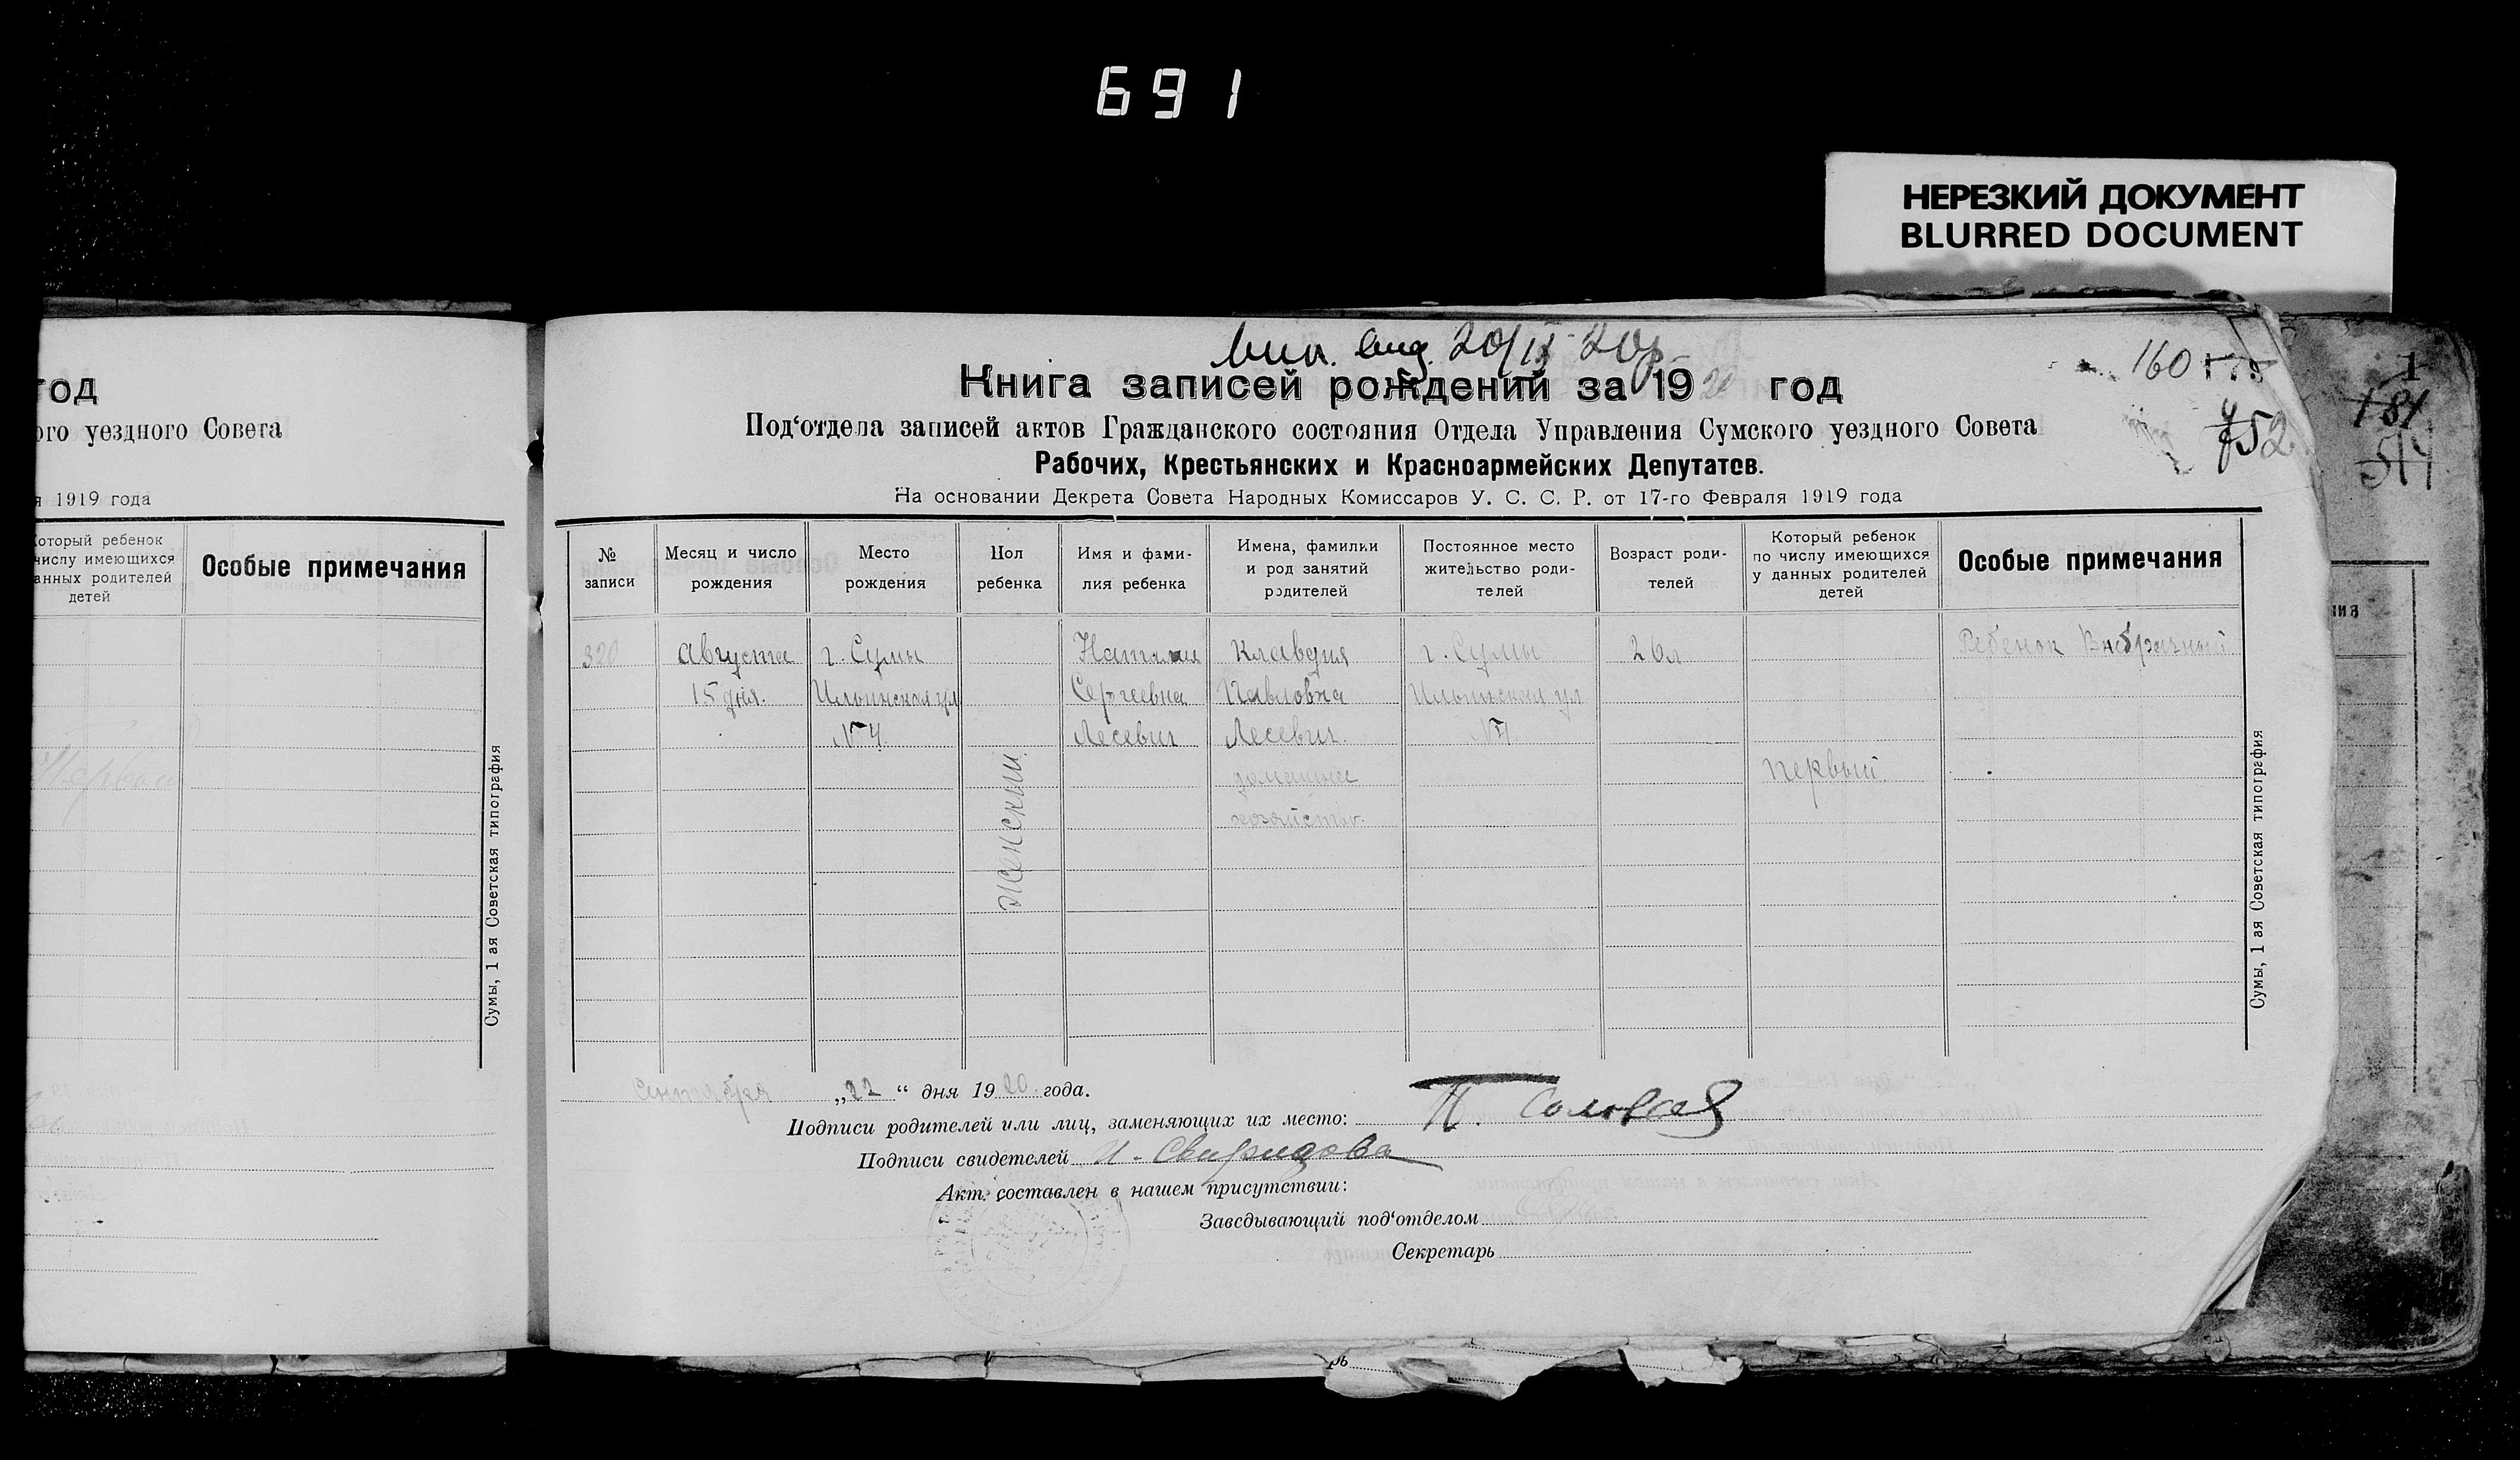 691
НЕРЕЗКИЙ ДОКУМЕНТ
BLURRED DOCUMENT
год
ого уездного Совета
я 1919 года
Который ребенок
числу имеющихся
данных родителей
детей
Особые примечания
Первый
Сумы, 1 ая Советская типография
20/IX 20р
160
752
Книга записей рождений за 1920 год
Под‘отдела записей актов Гражданского состояния Отдела Управления Сумского уездного Совета
Рабочих, Крестьянских и Красноармейских Депутатов.
На основании Декрета Совета Народных Комиссаров У. С. С. Р. от 17-го Февраля 1919 года
№
записи
Месяц и число
рождения
Место
рождения
Пол
ребенка
Имя и фами-
лия ребенка
Имена, фамилии
и род занятий
родителей
Постоянное место
жительство роди-
телей
Возраст роди-
телей
Который ребенок
по числу имеющихся
у данных родителей
детей
Особые примечания
320
Августа
15 дня.
г. Сумы
Ильинская ул
№ 4.
женский
Наталия
Сергеевна
Лесевич
Клавдия
Павловна
Лесевич.
домашнее
хозяйство.
г. Сумы
Ильинская ул
№ 4
26 л
первый.
Ребенок Внебрачный
Сумы, 1 ая Советская типография
Сентября „22“ дня 1920 года.
Подписи родителей или лиц, заменяющих их место:
Подписи свидетелей И. Свиридова
Акт. составлен в нашем присутствии:
Заведывающий под‘отделом
Секретарь
1
181
514
ия